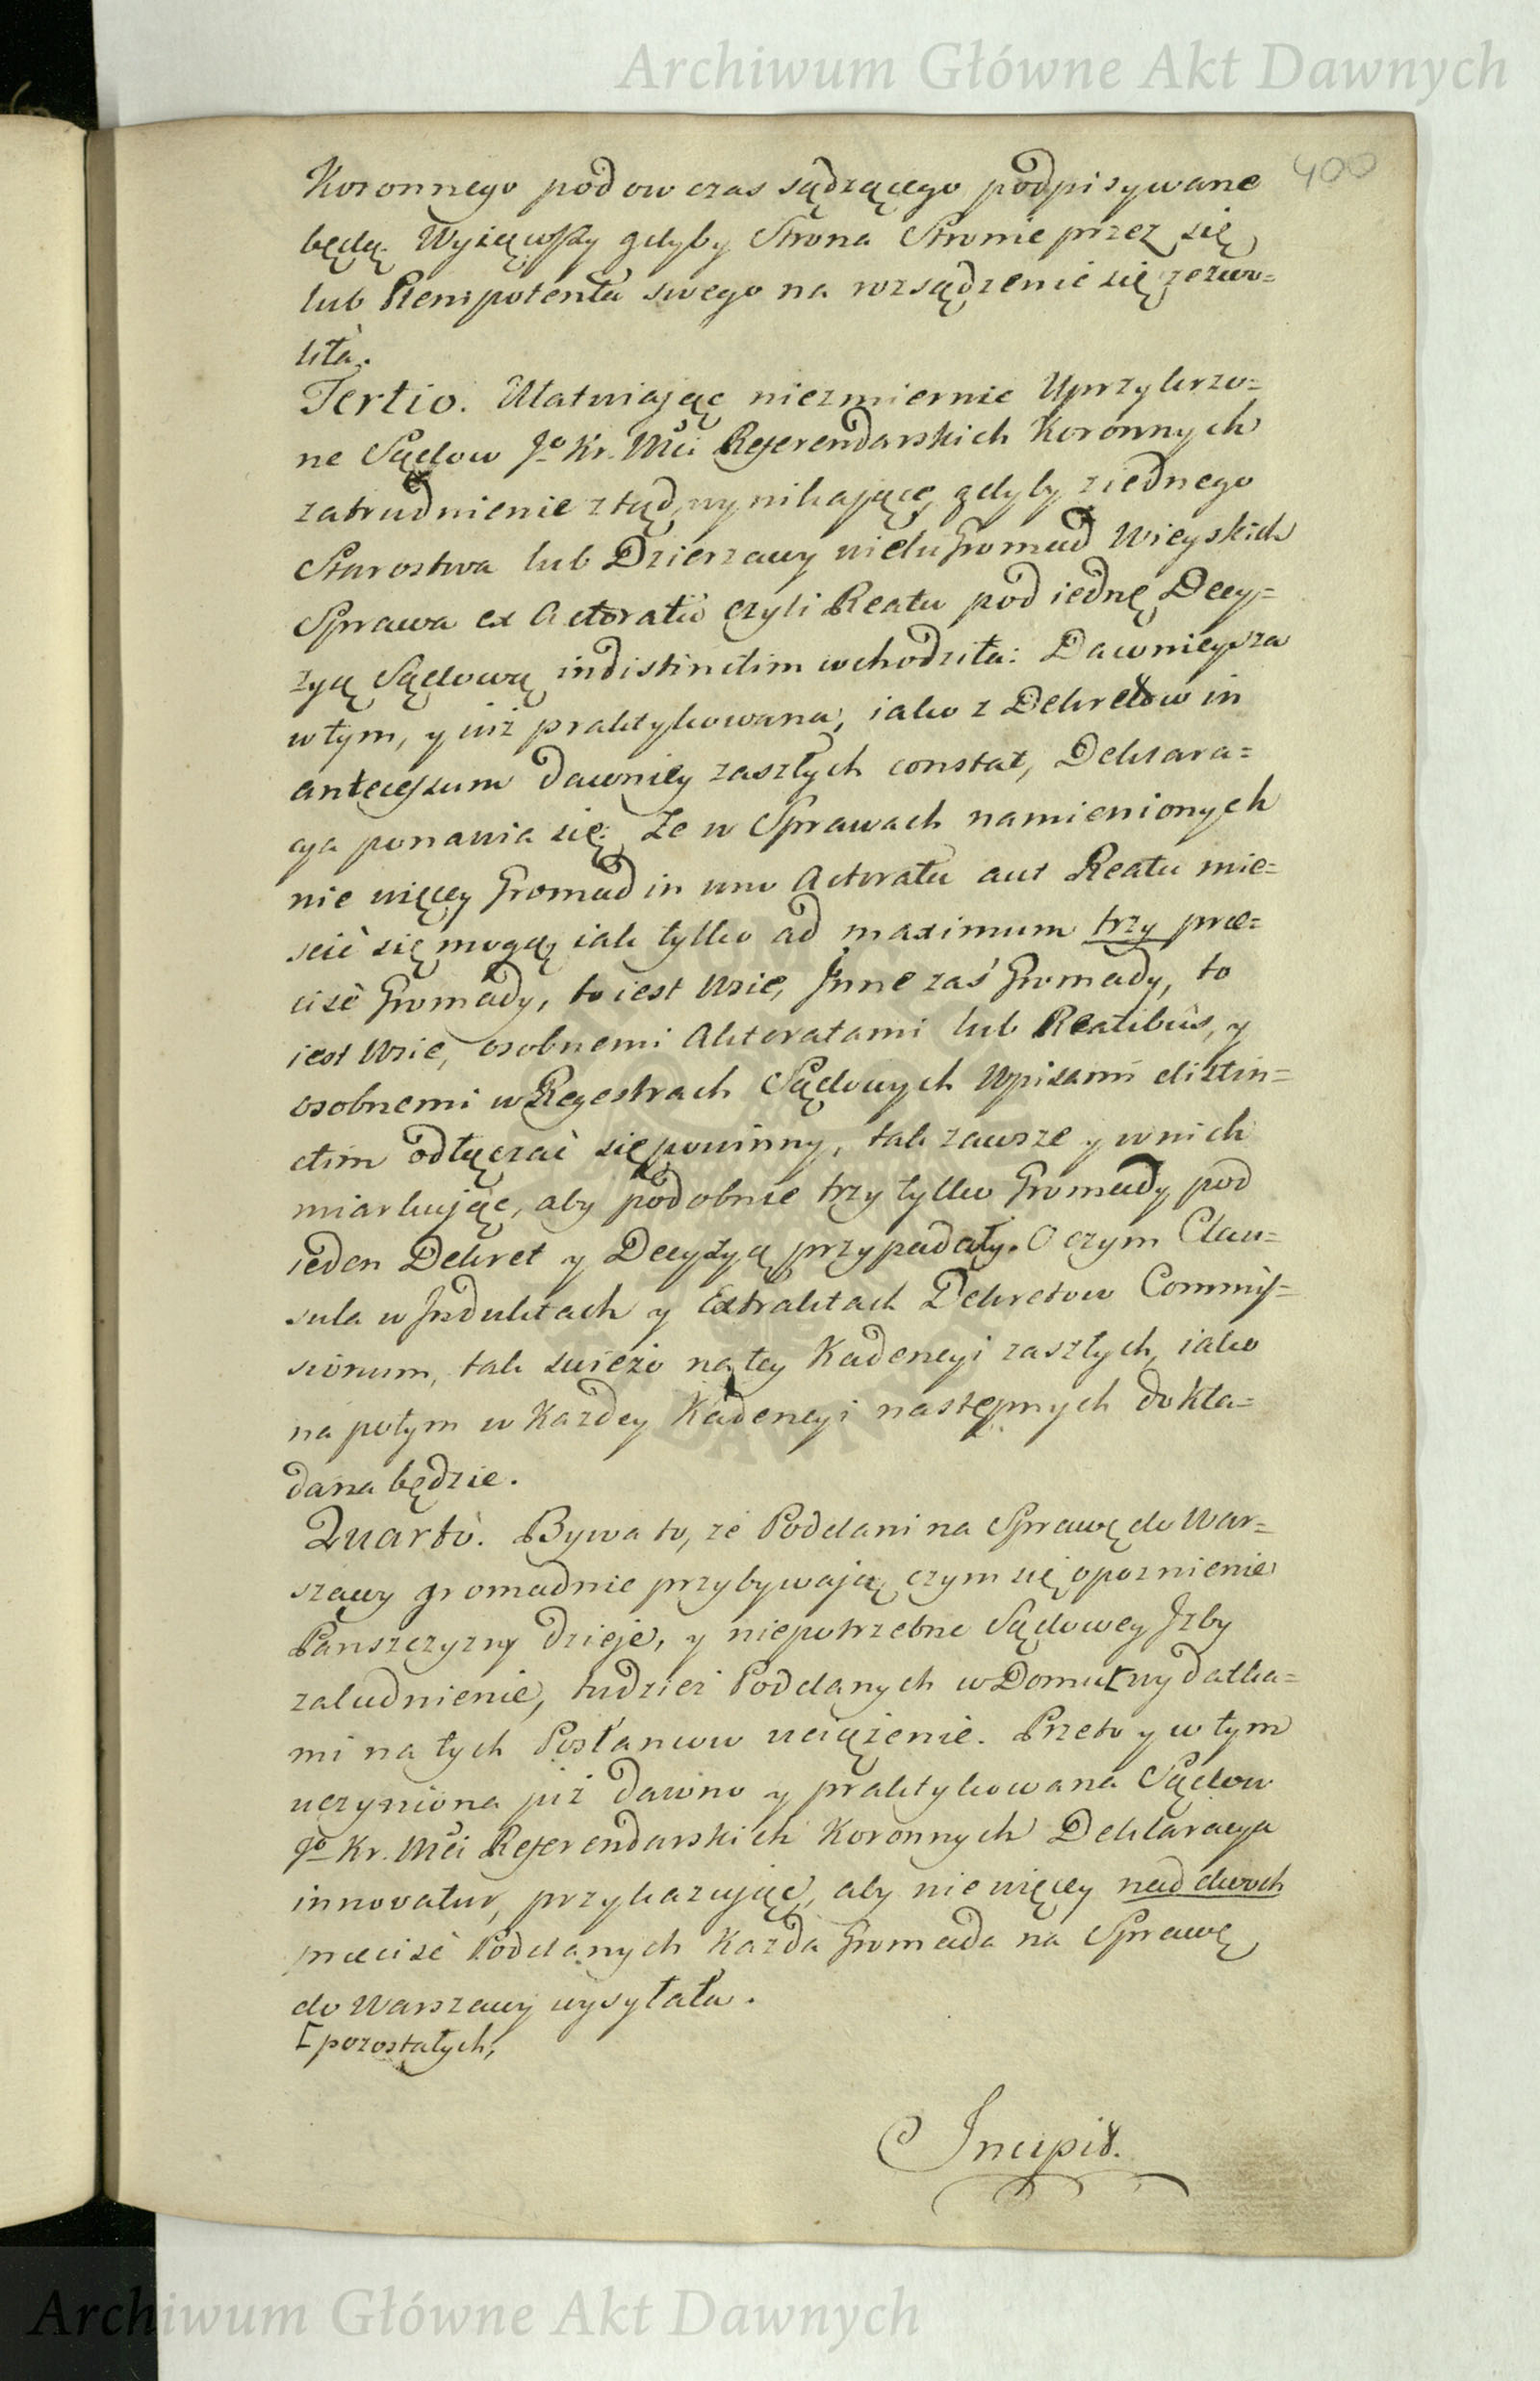 Archiwum Główne Akt Dawnych
400
Koronnego pod ow czas sądzącego podpisywane
będą. Wyiąwszy gdyby Strona Stronie przez się
lub Plenipotenta swego na rozsądzenie się zezwo=
liła.
Tertio. Ułatwiając niezmiernie Uprzykrzo=
ne Sądow Jo Kr. Mci Referendarskich Koronnych
zatrudnienie ztąd wynikające, gdyby z iednego
Starostwa lub Dzierzawy wielu Gromad Wieyskich
Sprawa ex Actoratu czyli Reatu pod iednę Decy=
zyą Sądową indistinctim wchodziła: Dawnieysza
w tym, y iuż praktykowana, iako z Dekretow in
antecessum dawniey zaszłych constat, Deklara=
cya ponawia się: Ze w Sprawach namienionych
nie więcey Gromad in uno Actoratu aut Reatu mie=
scić się mogą iak tylko ad maximum trzy præ=
cisè Gromady, to iest Wsie, Inne zaś Gromady, to
iest Wsie, osobnemi Aktoratami lub Reatibus, y
osobnemi w Regestrach Sądowych Wpisami distin=
ctim odłączać się powinny, tak zawsze y w nich
miarkując, aby podobnie trzy tylko Gromady pod
ieden Dekret y Decyzyą przypadały. O czym Clau=
sula w Indultach y Extraktach Dekretow Commis=
sionum, tak swieżo na tey Kadencyi zaszłych, iako
na potym w Kazdey Kadencyi następnych dokła=
dana będzie.
Quartò. Bywa to, że Poddani na Sprawę do War=
szawy gromadnie przybywaią, czym się opoznienie
Panszczyzny dzieje, y niepotrzebne Sądowey Izby
zaludnienie, tudziez Poddanych w Domu [wydatka=
mi na tych Posłancow uciążenie. Przeto y w tym
uczyniona już dawno y praktykowana Sądow
Jo Kr. Mci Referendarskich Koronnych Deklaracya
innovatur, przykazując, aby nie więcey nad dwoch
præcisè Poddanych Kazda Gromada na Sprawę
do Warszawy wysyłała.
[pozostałych,
Incipit.
Archiwum Główne Akt Dawnych